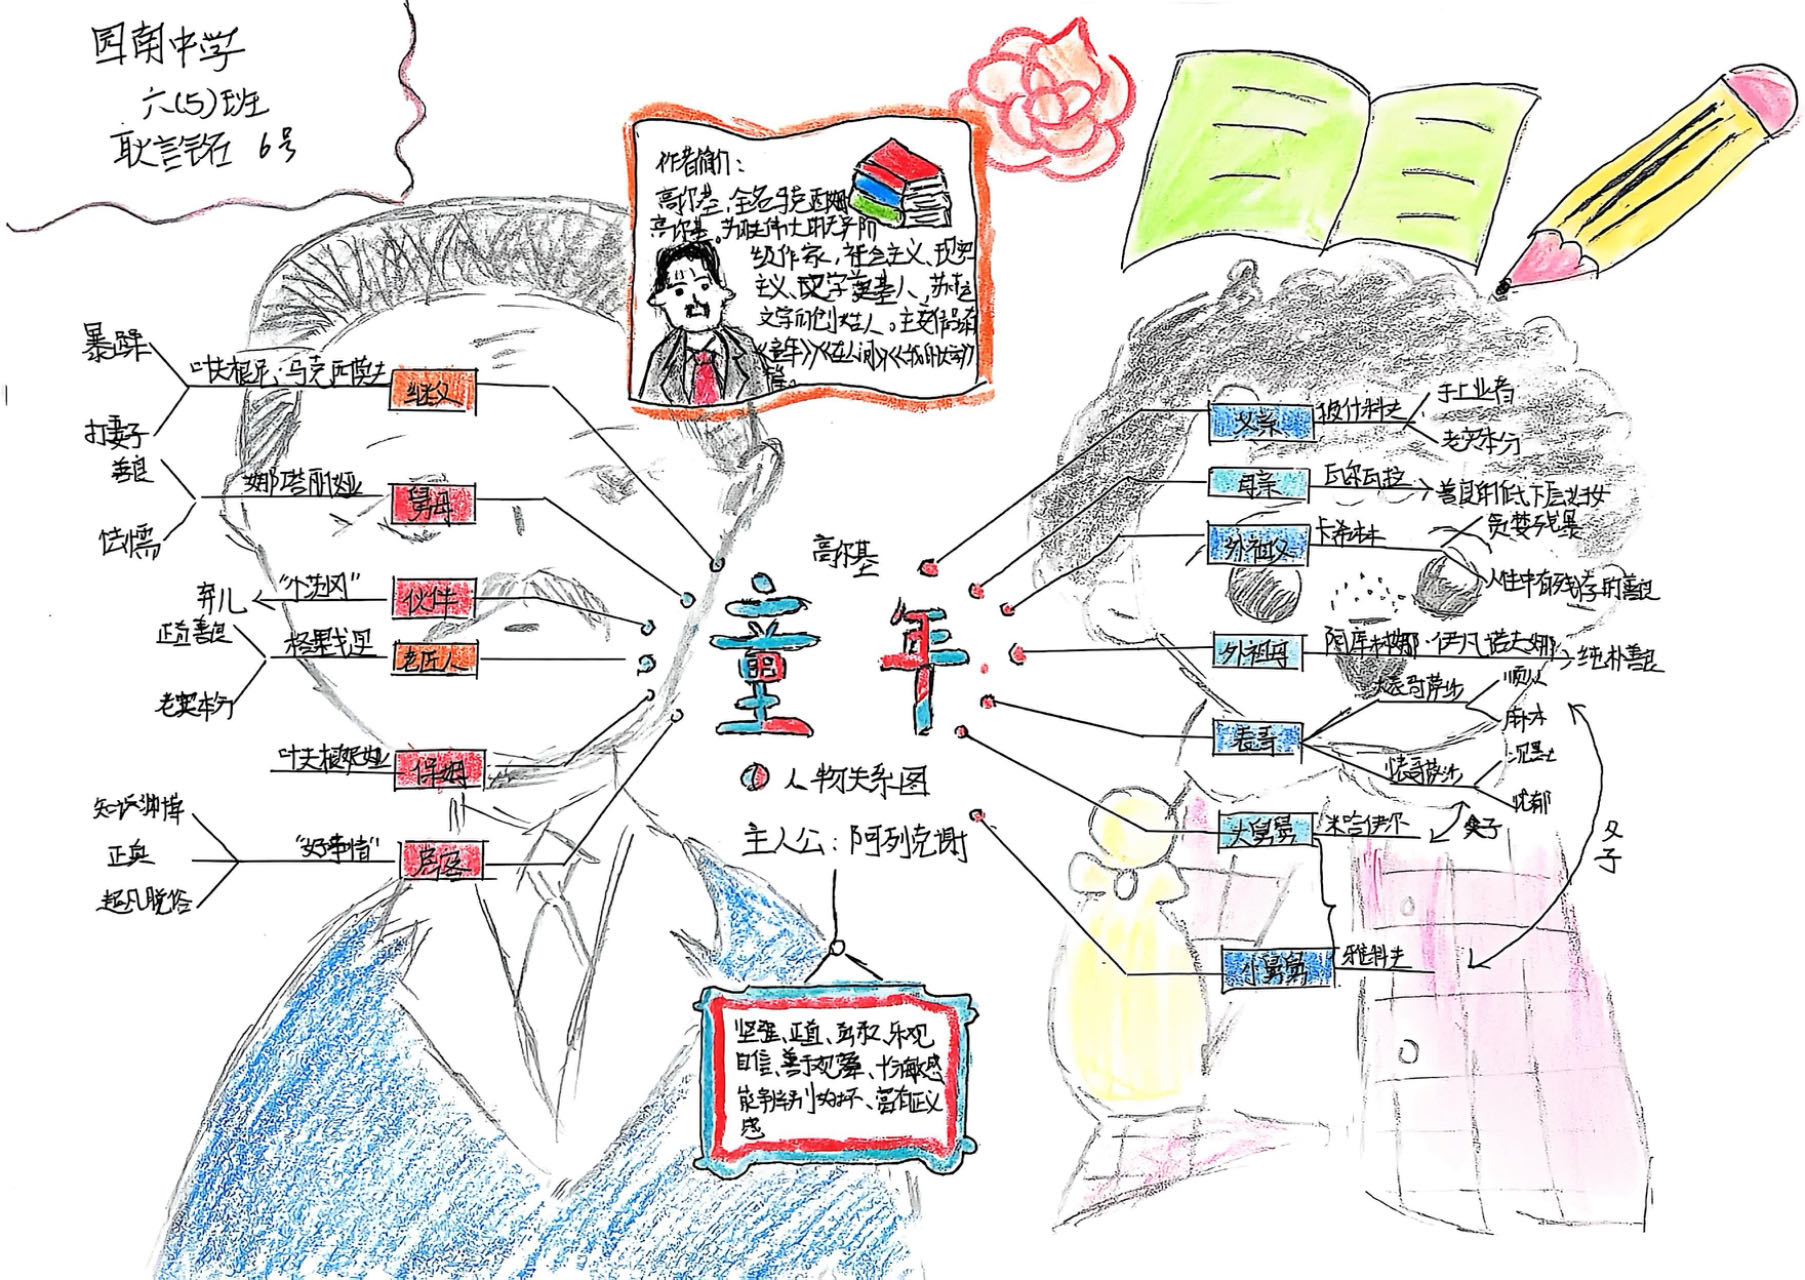 园南中学
六(5)班
耿言铭 6号
作者简介：
高尔基，全名马克西姆
高尔基。为联伟大的无产阶
级作家，社会主义、现实
主义、文学奠基人，苏联
文学的创始人。主要作品有
《童年》《在人间》《我的大学》
等。
高尔基
童年
人物关系图
主人公：阿列克谢
坚强、正直、勇敢、乐观
自信、善于观察、十分敏感
能辨别好坏、富有正义
感
继父
叶夫根尼·马克西莫夫
暴躁
打妻子
舅母
娜塔丽娅
善良
怯懦
伙伴
“小茨冈”
弃儿
老匠人
格里戈里
正直善良
老实本分
保姆
叶夫根妮娅
房客
“好事情”
知识渊博
正直
超凡脱俗
父亲
手工业者
老实本分
母亲
瓦尔瓦拉
善良的低下层妇女
外祖父
卡希林
贪婪残暴
人性中有残存的善良
外祖母
阿库林娜·伊凡诺夫娜
纯朴善良
表哥
大表哥萨沙
顺从
麻木
表哥萨沙
沉默
忧郁
大舅舅
米哈伊尔
父子
小舅舅
雅科夫
父子